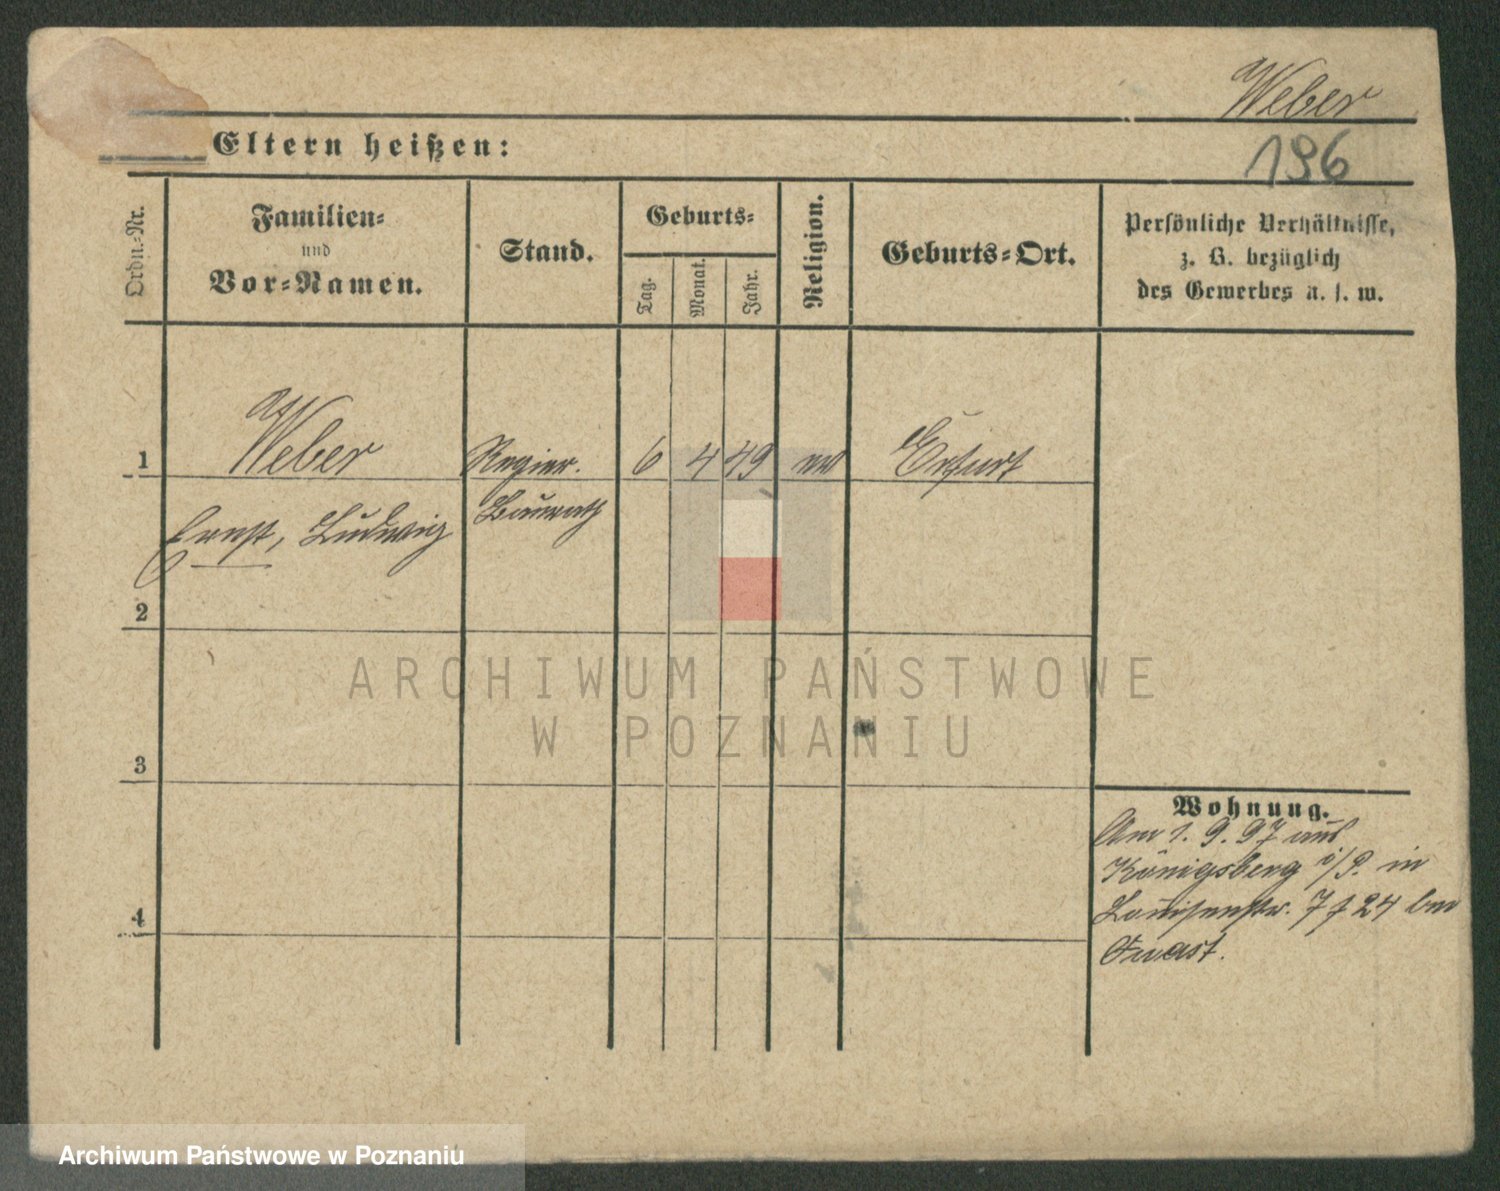 Weber
Eltern heißen:
196
Ordn.-Nr.
Familien-
und
Vor-Namen.
Stand.
Geburts-
Tag.
Monat.
Jahr.
Religion.
Geburts-Ort.
Persönliche Verhältnisse,
z. B. bezüglich
des Gewerbes u. s. w.
1
Weber
Regier.
6
4
49
ev
Erfurt
Ernst, Ludwig
Baurath
2
3
4
Wohnung.
Am 1. 9. 97 aus
Königsberg i/P. in
Louisenstr. 7 f 24 bei
ARCHIWUM PAŃSTWOWE
W POZNANIU
Archiwum Państwowe w Poznaniu